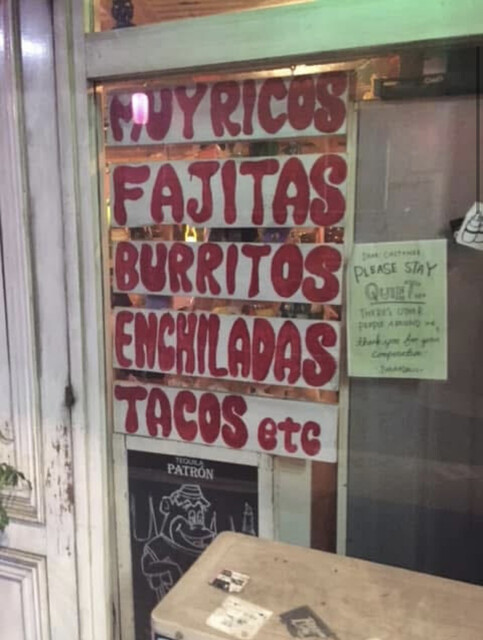 MUY RICOS
FAJITAS
BURRITOS
ENCHILADAS
TACOS etc
TEQUILA
PATRÓN
DEAR CUSTOMER
PLEASE STAY
QUIET...
THERE'S OTHER
PEOPLE AROUND us,
thank you for your
Cooperation